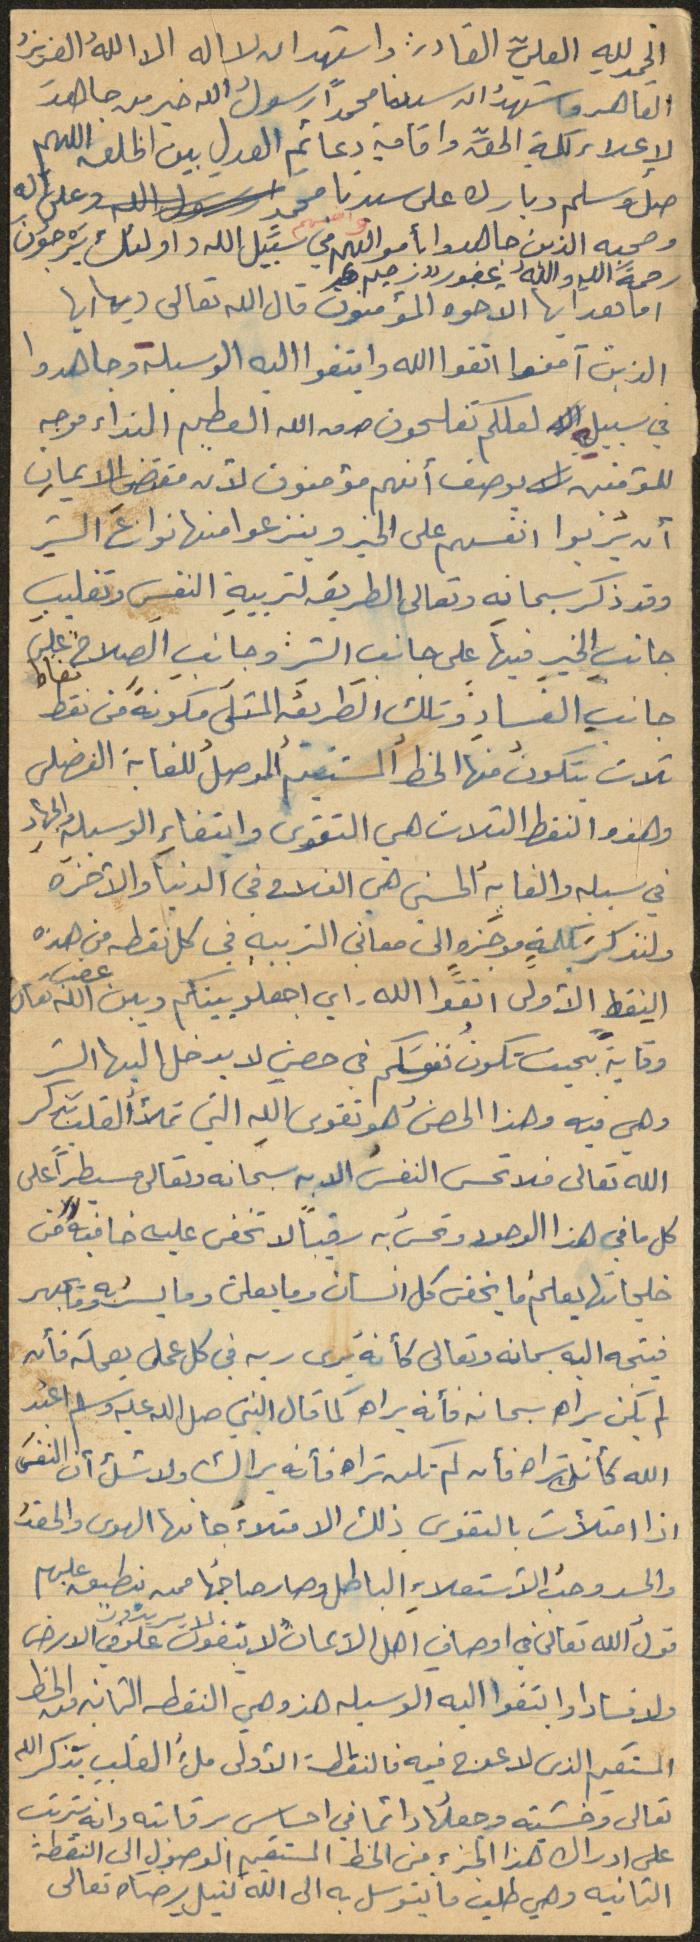 الحمد لله العلي القادر واشهد ان لا اله الا الله العزيز
القاهر واشهد ان سيدنا محمدًا رسول الله خير من جاهد
لإعلاء كلمة الحق واقامة دعائم العدل بين الخلق اللهم
صل وسلم وبارك على سيدنا محمد رسول الله وعلى آله
وصحبه الذين جاهدوا بأموالهم وانفسهم في سبيل الله اولئك يرجون
رحمة الله والله غفور رحيم
اما بعد ايها الاخوه المؤمنون قال الله تعالى (يا ايها
الذين آمنوا اتقوا الله وابتغوا اليه الوسيلة وجاهدوا
في سبيله لعلكم تفلحون صدق الله العظيم النداء موجه
للمؤمنين بوصف أنهم مؤمنون لأن مقتضى الايمان
أن يُربوا انفسهم على الخير وينزعوا منها نوازع الشر
وقد ذكر سبحانه وتعالى الطريقه لتربية النفس وتغليب
جانب الخير فيها على جانب الشر وجانب الصلاح على
جانب الفساد وتلك الطريقه المثلى مكونة من نقط نقاط
ثلاث يتكون منها الخط المستقيم الموصل للغاية الفضلى
وهذه النقط الثلاث هي التقوى وابتغاء الوسيلة والجهاد
في سبيله والغاية الحسنى هي الفلاح في الدنيا والآخره
ولنذكر بكلمة موجزه الى معاني التربيه في كل نقطه من هذه
النقط الأولى اتقوا الله. اي اجعلوا بينكم وبين غضب الله تعالى
وقاية بحيث تكون نفوسكم في حصن لا يدخل اليها الشر
وهي فيه وهذا الحصن هو تقوى الله التي تملأ القلب بذكر
الله تعالى فلا تحس النفس الا به سبحانه وتعالى مسيطرًا على
كل ما في هذا الوجود وتحس به رقيبًا لا تخفى عليه خافية من
خلجاتها يعلم ما يخفى كل انسان وما يعلن وما يسر به وما يجهر
فيتجه اليه سبحانه وتعالى كأنه يرى ربه في كل عمل يعمله فأن
لم يكن يراه سبحانه فأنه يراه كما قال النبي صل الله عليه وسلم اعبد
الله كأنك تراه فأن لم تكن تراه فأنه يراك ولا شك أن النفس
اذا امتلأت بالتقوى ذلك الامتلاء جانبها الهوى والحقد
والحسد وحب الأستعلاء الباطل وصار صاحبها ممن ينطبق عليهم
قول الله تعالى في اوصاف اهل الأيمان لا يبغون لا يريدون علو في الارض
ولا فسادا وابتغوا اليه الوسيله هذه هي النقطه الثانيه من الخط
المستقيم الذي لا عوج فيه فالنقطة الأولى ملء القلب بذكر الله
تعالى وخشيته وجعلها دائما في احساس برقابته وانه يترتب
على ادراك هذا الجزء من الخط المستقيم الوصول الى النقطة
الثانيه وهي طلب ما يتوسل به الى الله لنيل رضاه تعالى